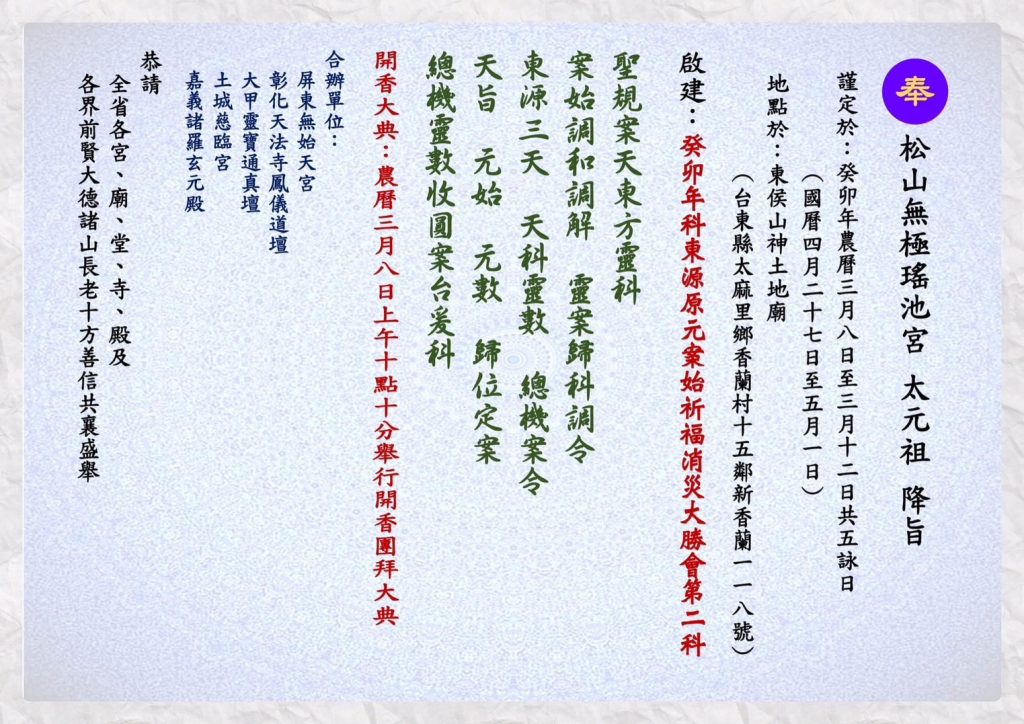 奉 松山無極瑤池宮 太元祖 降旨
謹定於：癸卯年農曆三月八日至三月十二日共五詠日
（國曆四月二十七日至五月一日）
地點於：東侯山神土地廟
（台東縣太麻里鄉香蘭村十五鄰新香蘭一一八號）
啟建：癸卯年科東源原元案始祈福消災大勝會第二科
聖規案天東方靈科
案始調和調解 靈案歸科調令
東源三天 天科靈數 總機案令
天旨 元始 元數 歸位定案
總機靈數收圓案台爰科
開香大典：農曆三月八日上午十點十分舉行開香團拜大典
合辦單位：
屏東無始天宮
彰化天法寺鳳儀道壇
大甲靈寶通真壇
土城慈臨宮
嘉義諸羅玄元殿
恭請
全省各宮、廟、堂、寺、殿及
各界前賢大德諸山長老十方善信共襄盛舉